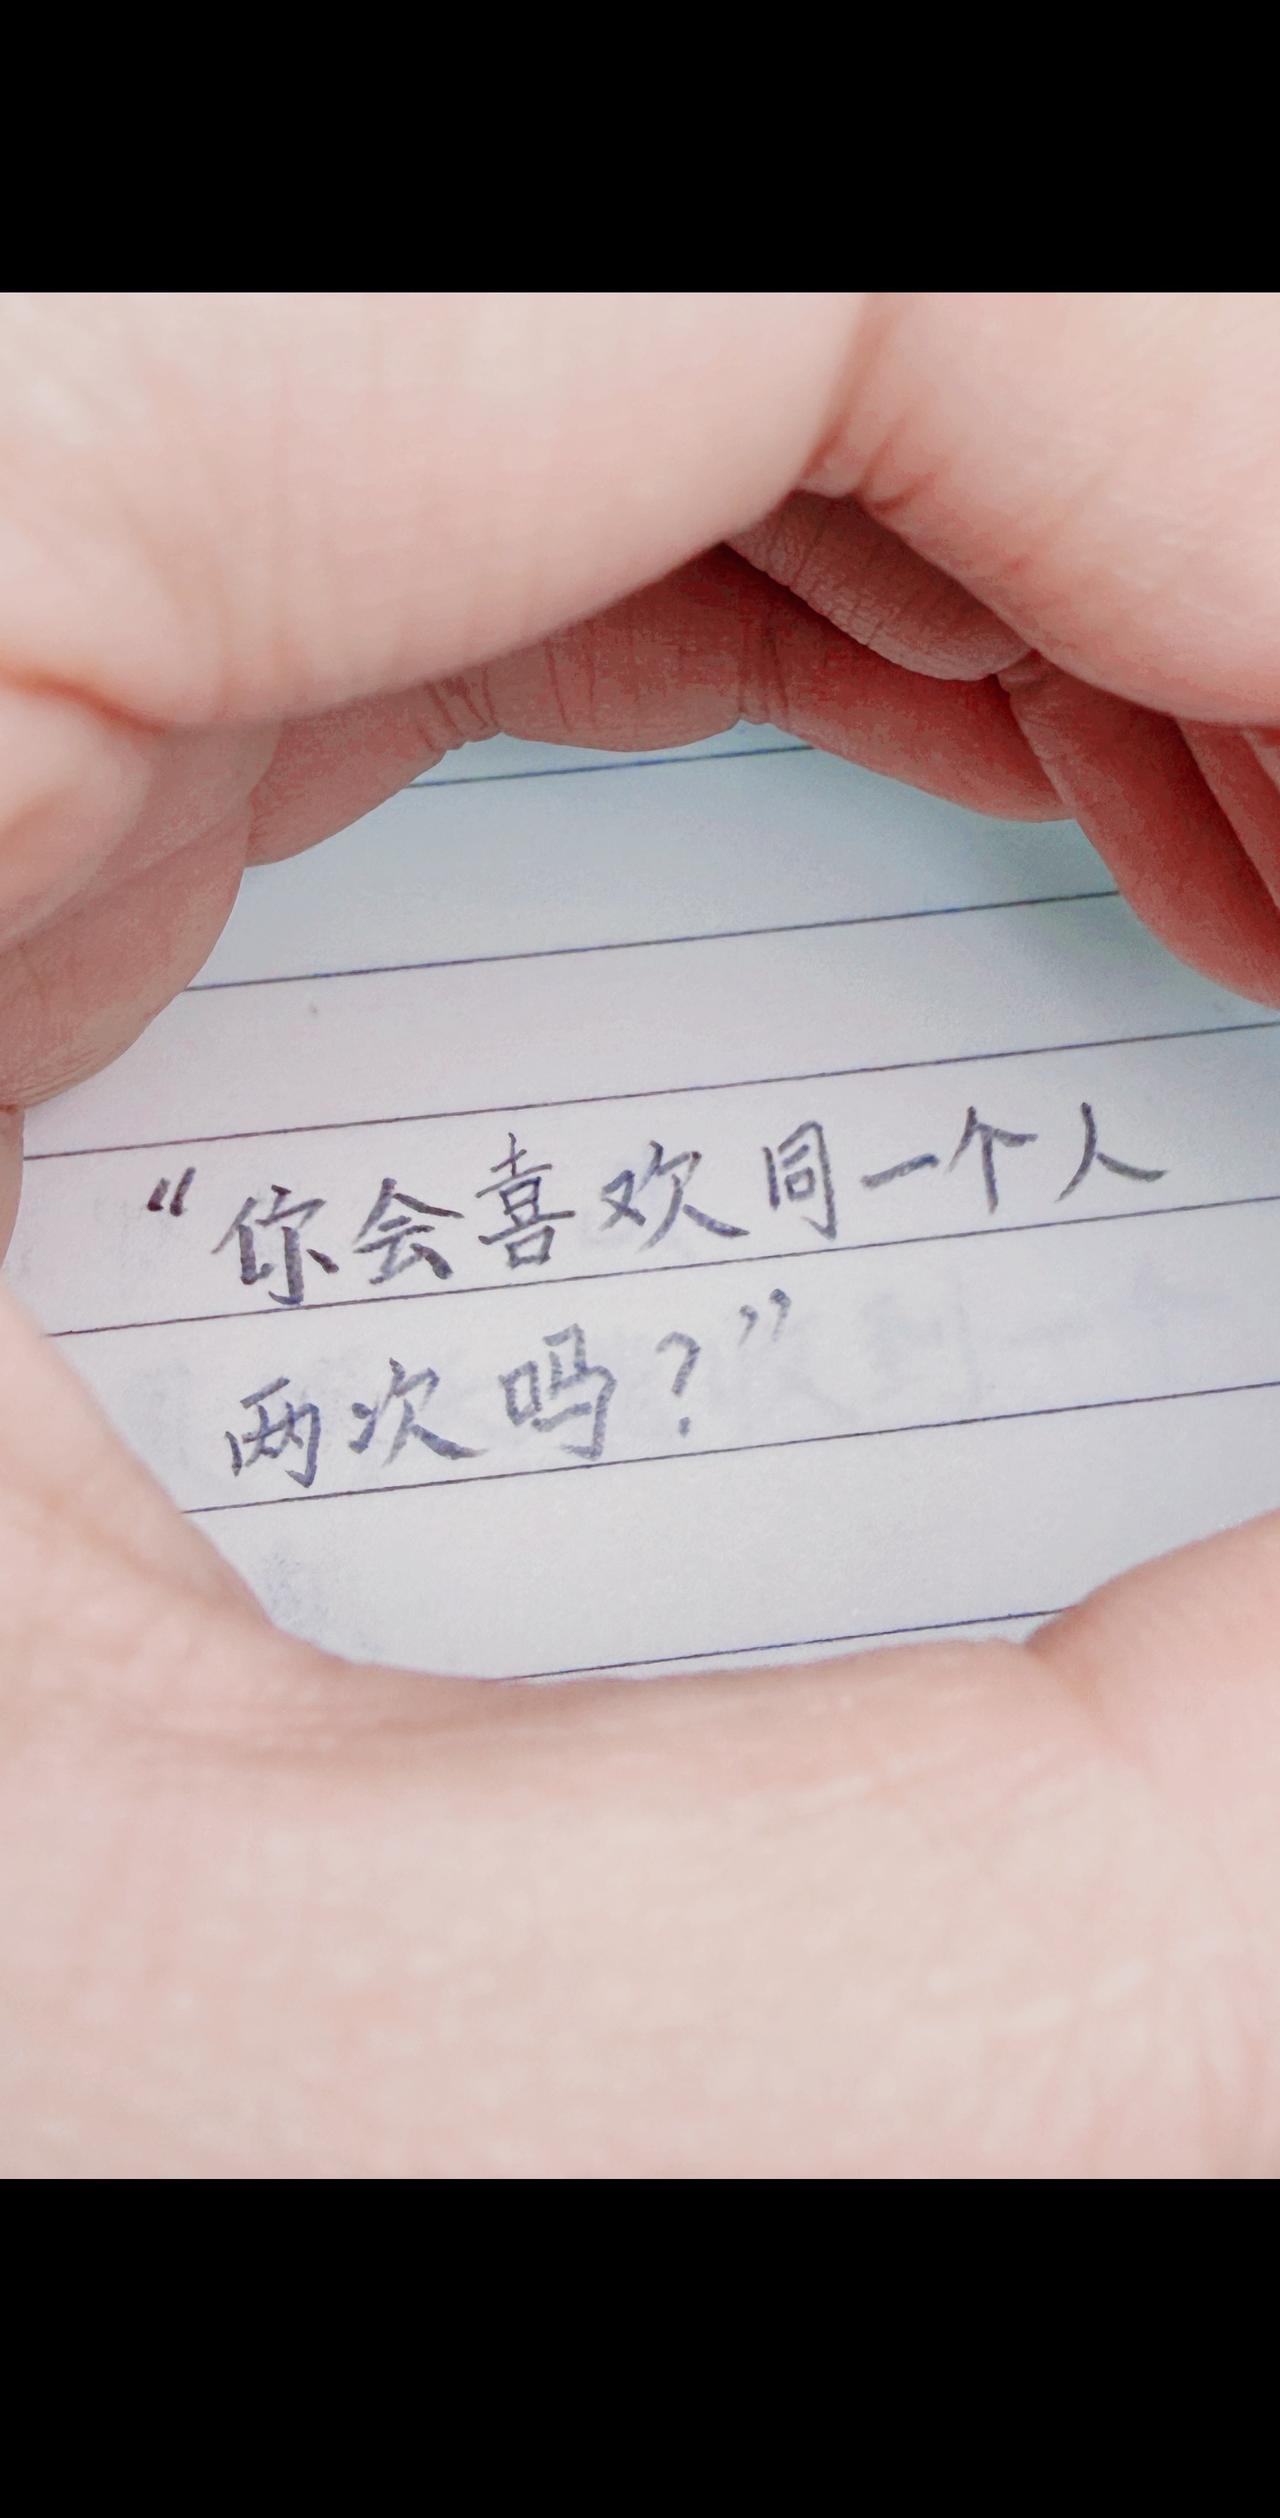 “你会喜欢同一个人
两次吗？”